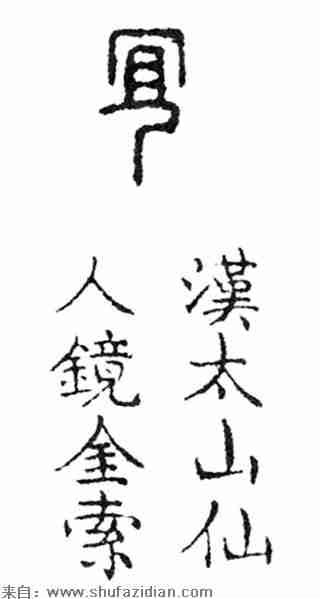 漢太山仙
人鏡金索
来自：www.shufazidian.com